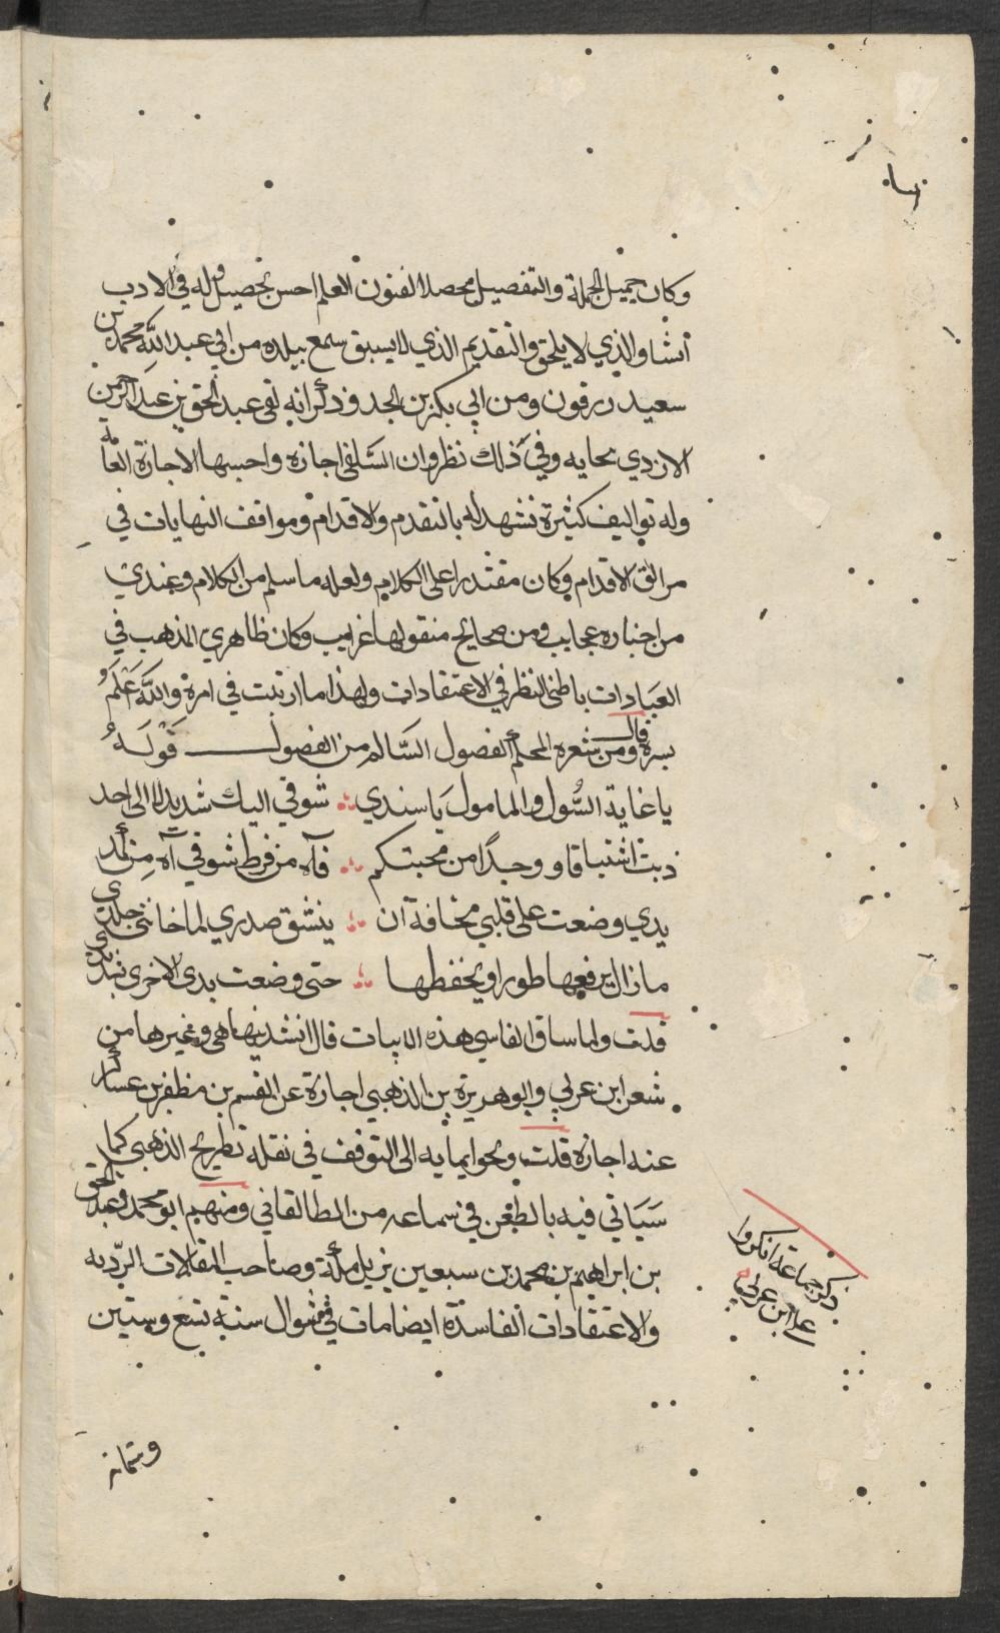 وكان جميل الجملة والتفصيل محصلا لفنون العلم احسن تحصيل وله في الادب
الشاو الذي لا يلحق والتقديم الذي لا يسبق سمع ببلده من ابي عبد الله محمد بن
سعيد زرقون ومن ابي بكر بن الجد وذكر انه لقي عبد الحق بن عبد الرحمن
الازدي بجايه وفي ذلك نظر وان السلفي اجازه واحسبها الاجازة العامة
وله تواليف كثيرة تشهد له بالتقدم والاقدام ومواقف النهايات في
مزالق الاقدام وكان مقتدرا على الكلام ولعله ما سلم من الكلام وعندي
من اخباره عجايب ومن صحايح منقولها غرايب وكان ظاهري المذهب في
العبادات باطني النظر في الاعتقادات ولهذا ما ارتبت في امره والله اعلم
بسره قال ومن شعره المحلم الفصول السالم من الفضول قوله
يا غاية السول والمامول يا سندي شوقي اليك شديد لا الى احد
ذبت اشتياقا ووجدا من محبتكم فآه من فرط شوقي آه من كمد
يدي وضعت على قلبي مخافة ان ينشق صدري لما خانني جلدي
ما زال يرفعها طورا ويخفظها حتى وضعت يدي الاخرى تشد يدي
قلت ولما ساق الفاسي هذه الابيات قال انشدنيها هي وغيرها من
شعر ابن عربي وابو هريرة بن الذهبي اجازة عن القسم بن مظفر بن عساكر
عنه اجازة قلت ونحو ايمايه الى التوقف في نقله تصريح الذهبي كما
سياتي فيه بالطعن في سماعه من الطالقاني ومنهم ابو محمد عبد الحق
بن ابراهيم بن محمد بن سبعين نزيل مكة وصاحب المقالات الرديه
والاعتقادات الفاسدة ايضا مات في شوال سنة تسع وستين
وستمائة
ذكر جماعة انكروا
على ابن عربي